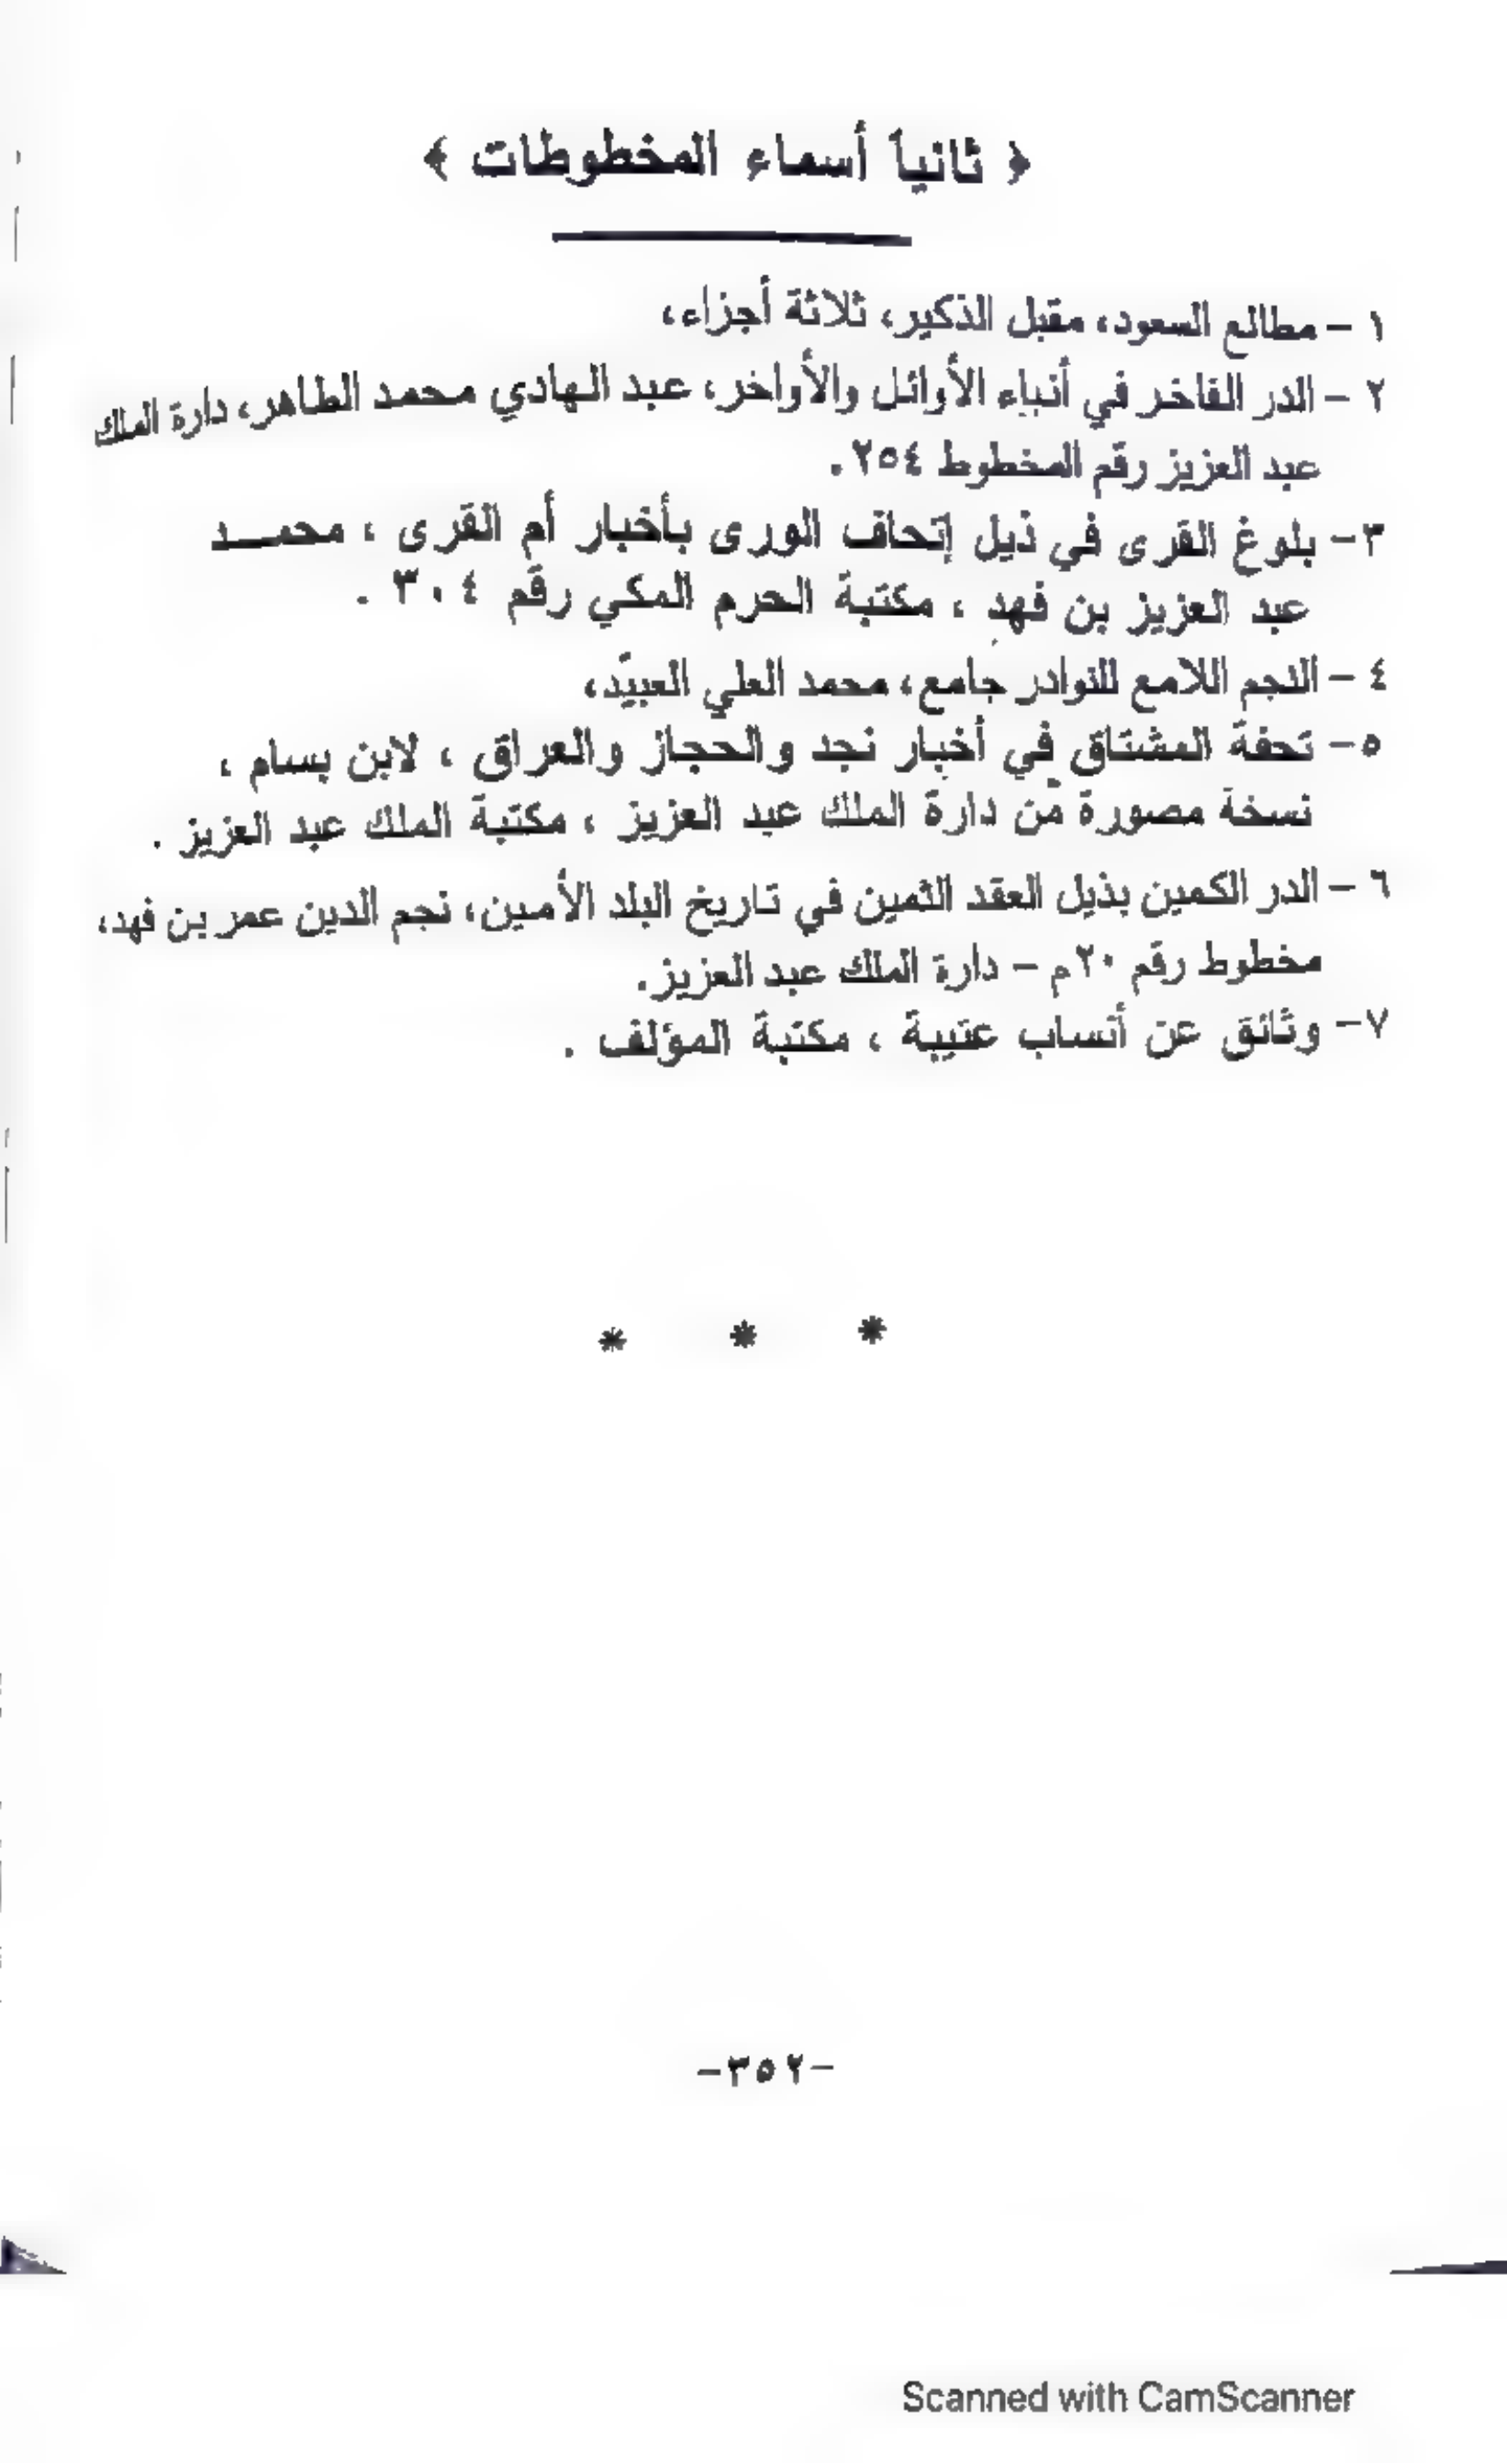 ﴿ ثانياً أسماء المخطوطات ﴾
١ – مطالع السعود، مقبل الذكير، ثلاثة أجزاء،
٢ – الدر الفاخر في أنباء الأوائل والأواخر، عبد الهادي محمد الطاهر، دارة الملك
عبد العزيز رقم المخطوط ٢٥٤.
٣- بلوغ القرى في ذيل إتحاف الورى بأخبار أم القرى ، محمـــد
عبد العزيز بن فهد ، مكتبة الحرم المكي رقم ٣٠٤ .
٤ – النجم اللامع للنوادر جامع، محمد العلي العبيّد،
٥- تحفة المشتاق في أخبار نجد والحجاز والعراق ، لابن بسام ،
نسخة مصورة من دارة الملك عبد العزيز ، مكتبة الملك عبد العزيز .
٦ – الدر الكمين بذيل العقد الثمين في تاريخ البلد الأمين، نجم الدين عمر بن فهد،
مخطوط رقم ٢٠م – دارة الملك عبد العزيز.
٧- وثائق عن أنساب عتيبة ، مكتبة المؤلف .
* * *
-٣٥٢-
Scanned with CamScanner